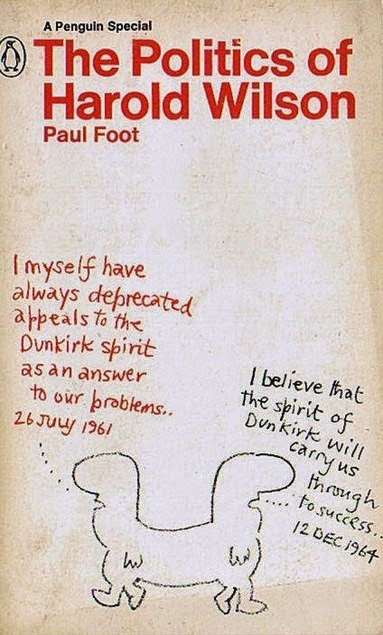 A Penguin Special
The Politics of
Harold Wilson
Paul Foot
I myself have
always deprecated
appeals to the
Dunkirk spirit
as an answer
to our problems..
26 JULY 1961
I believe that
the spirit of
Dunkirk will
carry us
through
to success..
12 DEC 1964